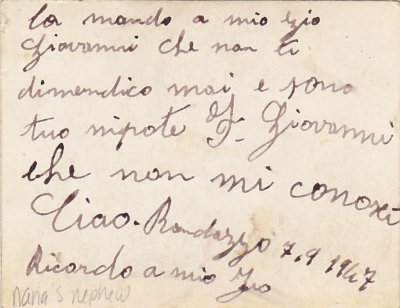 la mando a mio zio
Giovanni che non ti
dimendico mai e sono
tuo nipote F. Giovanni
che non mi conosci
Ciao. Randazzo 7.9 1947
Ricordo a mio zio
Maria's nephew